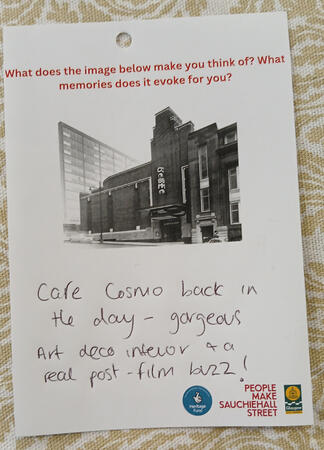 What does the image below make you think of? What
memories does it evoke for you?
COSMO
Cafe Cosmo back in
the day - gorgeous
Art deco interior + a
real post-film buzz!
Heritage
Fund
PEOPLE
MAKE
SAUCHIEHALL
STREET
Glasgow